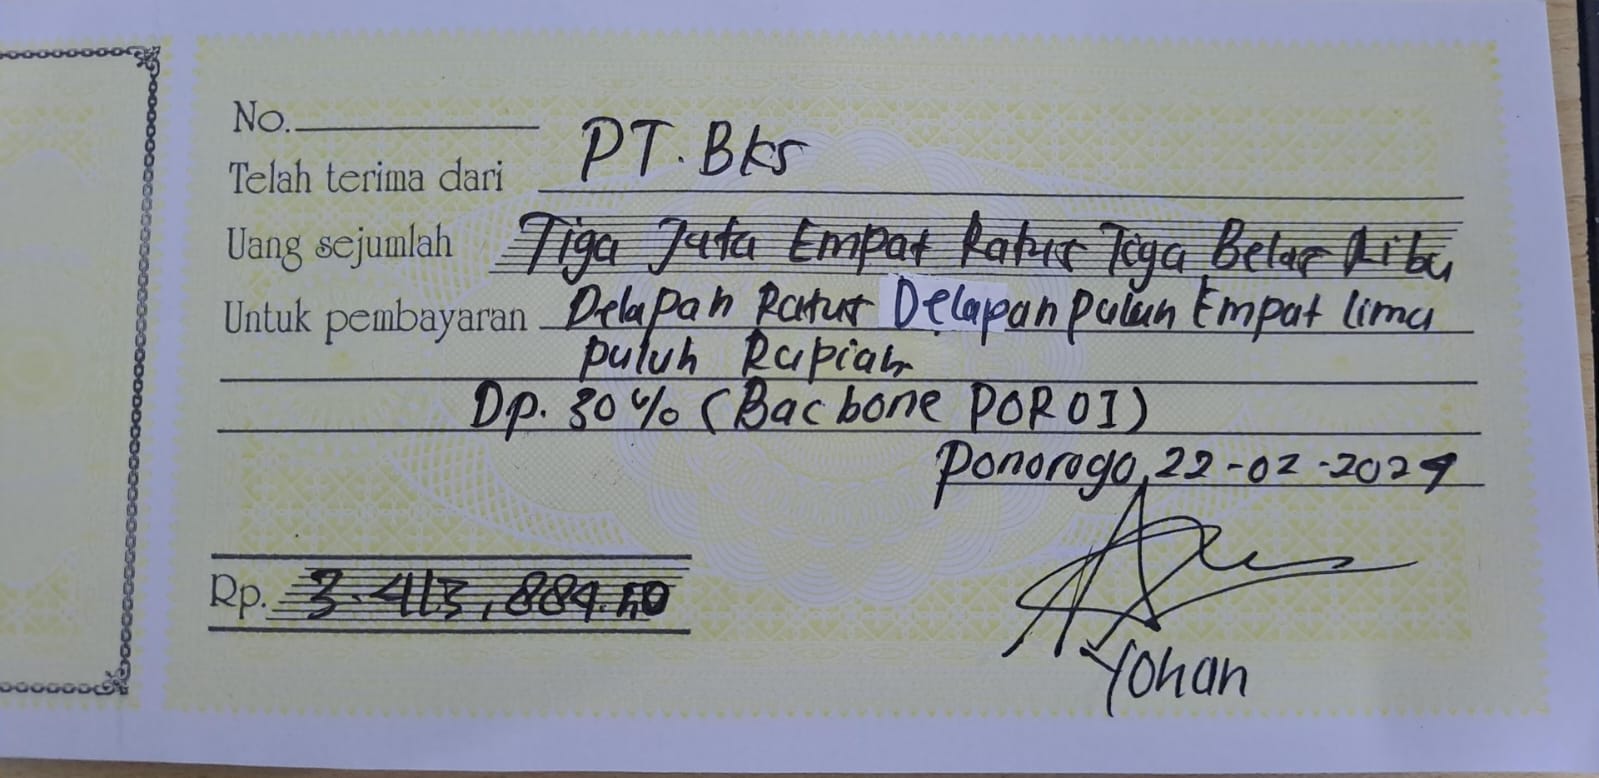 No.
Telah terima dari PT. Bks
Uang sejumlah Tiga Juta Empat Ratus Tiga Belas Ribu
Untuk pembayaran Delapan Ratus Delapan puluh Empat lima
puluh Rupiah
Dp. 30% (Bacbone POROI)
Ponorogo, 22-02-2024
Rp. 3.413,884.50
Yohan